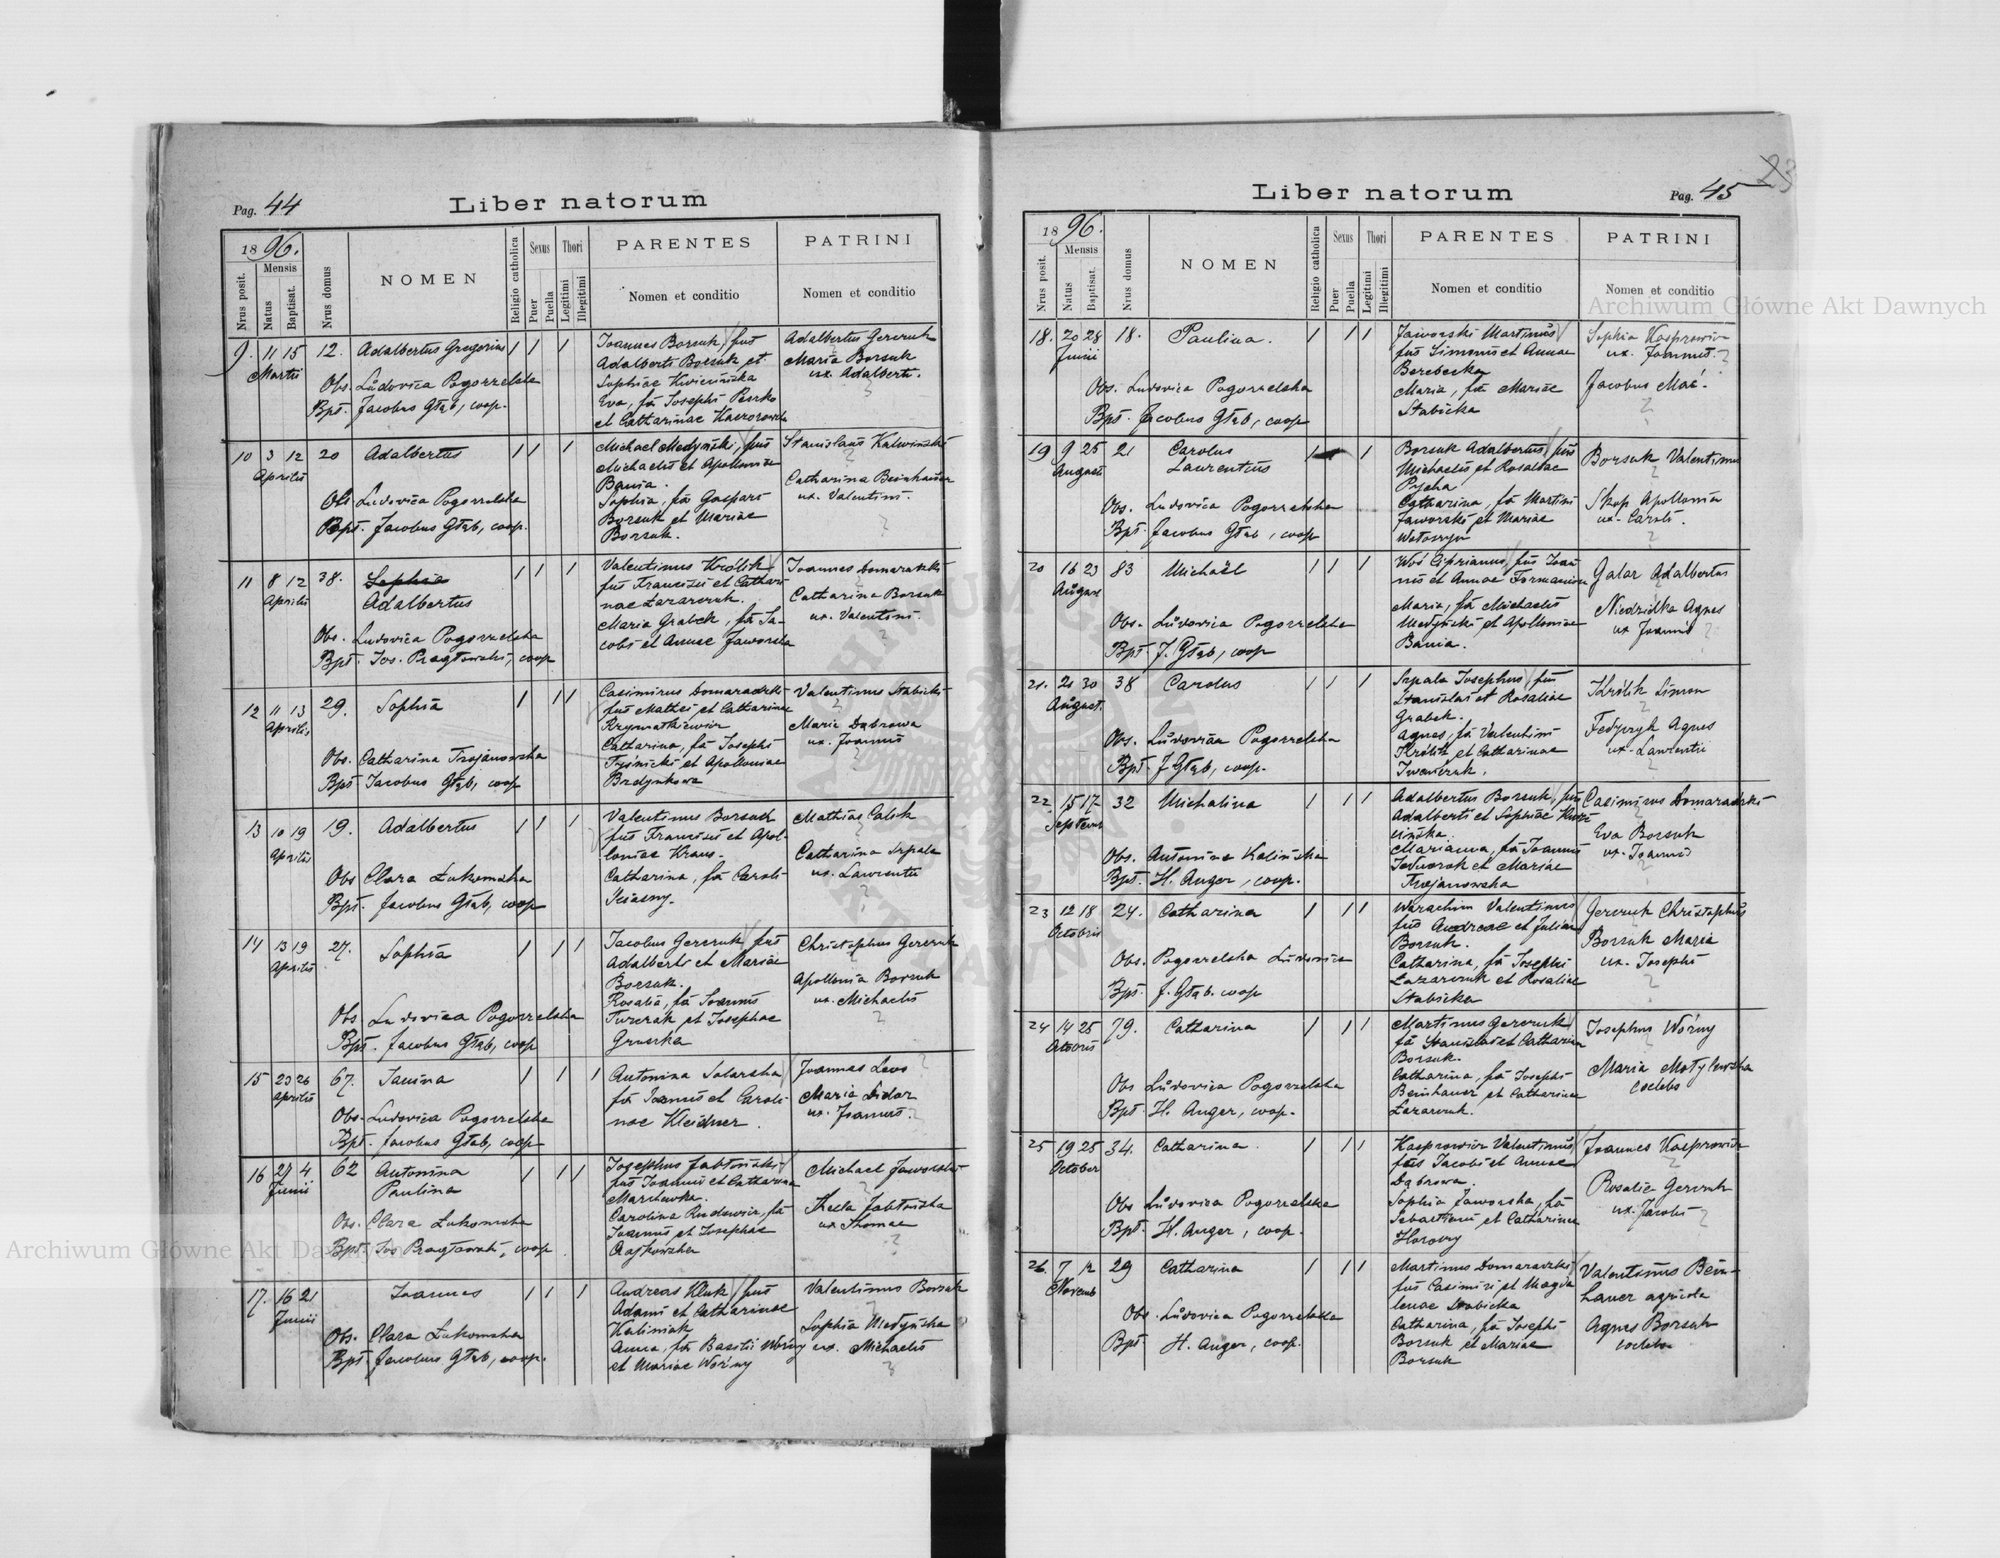 Pag. 44
Liber natorum
1896.
Mensis
Nrus posit.
Natus
Baptisat.
Nrus domus
NOMEN
Religio catholica
Sexus
Puer
Puella
Thori
Legitimi
Illegitimi
PARENTES
Nomen et conditio
PATRINI
Nomen et conditio
9. 11 15 12. Adalbertus Gregorius
Martii
Obs. Ludovica Pogorzelska
Bpt. Jacobus Głąb, coop.
Joannes Borsuk, fius
Adalberti Borsuk et
Sophiae
Eva, fa Josephi
et Catharinae
Adalbertus Gerczuk
Maria Borsuk
ux. Adalberti.
10 3 12 20 Adalbertus
Aprilis
Obs Ludovica Pogorzelska
Bapt. Jacobus Głąb, coop.
Michael Medyński, fius
Michaelis et Apolloniae
Bania.
Sophia, fa Gaspari
Borsuk et Mariae
Borsuk.
Stanislaus
Catharina Beinhauer
ux. Valentini.
11 8 12 38. Sophia
Aprilis Adalbertus
Obs. Ludovica Pogorzelska
Bpt. Jos. Pragłowski, coop
Valentinus Królik
fius Francisci et Cathari
nae Łazarczuk.
Maria Grabek, fa Ja-
cobi et Annae Jaworska
Joannes Domaradzki
Catharina Borsuk
ux. Valentini.
12 11 13 29. Sophia
Aprilis
Obs. Catharina Trojanowska
Bpt. Jacobus Głąb, coop
Casimirus Domaradzki
fius Mathei et Catharinae
Catharina, fa Josephi
et Apolloniae
Valentinus Stabicki
Maria Dąbrowa
ux. Joannis
13 10 19 19. Adalbertus
Aprilis
Obs Clara Łukomska
Bpt. Jacobus Głąb, coop
Valentinus Borsuk
fius Francisci et Apol-
loniae Kraus.
Catharina, fa Caroli
Mathias
Catharina Srpala
ux. Laurentii
14 13 19 27. Sophia
Aprilis
Obs Ludovica Pogorzelska
Bpt. Jacobus Głąb, coop
Jacobus Gerczuk, fius
Adalberti et Mariae
Borsuk.
Rosalia, fa Joannis
et Josephae
Gruszka
Christophus Gerczuk
Apollonia Borsuk
ux. Michaelis
15 23 26 67. Janina
Aprilis
Obs. Ludovica Pogorzelska
Bpt. Jacobus Głąb, coop
Antonina Solarska
fa Joannis et Caroli-
nae Kleidner.
Joannes Lews
Maria Didor
ux. Joannis.
16 27 4 62 Antonina
Junii Paulina
Obs. Clara Łukomska
Bpt. Jos Pragłowski, coop
Josephus Jabłoński
fius Joannis et Catharina
Carolina Rudawicz, fa
Joannis et Josephae
Rajkowska
Michael Jaworski
Thecla Jabłońska
ux Thomae
17. 16 21 Joannes
Junii
Obs. Clara Łukomska
Bpt. Jacobus Głąb, coop.
Andreas Kluk, fius
Adami et Catharinae
Kaliniak
Anna, fa Basilii Woźny
et Mariae Woźny
Valentinus Borsuk
Sophia Medyńska
ux. Michaelis
23
Liber natorum
Pag. 45
1896.
Mensis
Nrus posit.
Natus
Baptisat.
Nrus domus
NOMEN
Religio catholica
Sexus
Puer
Puella
Thori
Legitimi
Illegitimi
PARENTES
Nomen et conditio
PATRINI
Nomen et conditio
18. 20 28 18. Paulina.
Junii
Obs. Ludovica Pogorzelska
Bpt. Jacobus Głąb, coop
Jaworski Martinus
fius Simonis et Annae
Maria, fa Mariae
Stabicka
Sophia Kasprowicz
ux. Joannis.
Jacobus Mać.
19 9 25 21 Carolus
August Laurentius
Obs. Ludovica Pogorzelska
Bpt. Jacobus Głąb, coop
Borsuk Adalbertus, fius
Michaelis et Rosaliae
Pycha
Catharina, fa Martini
Jaworski et Mariae
Borsuk Valentinus
Skop Apollonia
ux. Caroli.
20 16 23 83 Michaël
August
Obs. Ludovica Pogorzelska
Bpt J. Głąb, coop
Woś Ciprianus, fius Joan
nis et Annae
Maria, fa Michaelis
Medyński et Apolloniae
Bania.
Galar Adalbertus
Niedzilka Agnes
ux Joannis
21. 21 30 38 Carolus
August.
Obs. Ludovica Pogorzelska
Bpt. J. Głąb, coop.
Srpala Josephus, fius
Stanislai et Rosaliae
Grabek.
Agnes, fa Valentini
Królik et Catharinae
Królik Simon
Fedyczyk Agnes
ux. Laurentii
22 15 17 32 Michalina
Septemb
Obs. Antonina Kalińska
Bpt. H. Anger, coop.
Adalbertus Borsuk, fius
Adalberti et Sophiae
Marianna, fa Joannis
et Mariae
Trojanowska
Casimirus Domaradzki
Eva Borsuk
ux. Joannis
23 12 18 24. Catharina
Octobris
Obs. Pogorzelska Ludovica
Bpt. J. Głąb. coop
Valentinus
fius Andreae et Julian
Borsuk.
Catharina, fa Josephi
Łazarczuk et Rosaliae
Stabicka
Gerczuk Christophus
Borsuk Maria
ux. Josephi
24 14 25 79. Catharina
Octobris
Obs Ludovica Pogorzelska
Bpt. H. Anger, coop.
Martinus Gerczuk
fius Stanislai et Catharina
Borsuk.
Catharina, fa Josephi
Beinhauer et Catharinae
Łazarczuk.
Josephus Woźny
Maria Motylewska
coelebs
25 19 25 34. Catharina.
October
Obs Ludovica Pogorzelska
Bpt. H. Anger, coop.
Kasprowicz Valentinus
fius Jacobi et Annae
Dąbrowa.
Sophia Jaworska, fa
Sebastiani et Catharinae
Joannes Kasprowicz
Rosalia Gerczuk
ux. Jacobi
26. 7 12 29 Catharina
Novemb
Obs. Ludovica Pogorzelska
Bpt H. Anger, coop.
Martinus Domaradzki
fius Casimiri et Magda
lenae Stabicka
Catharina, fa Josephi
Borsuk et Mariae
Borsuk
Valentinus Bein-
hauer agricola
Agnes Borsuk
coelebs
Archiwum Główne Akt Dawnych
Archiwum Główne Akt Dawnych